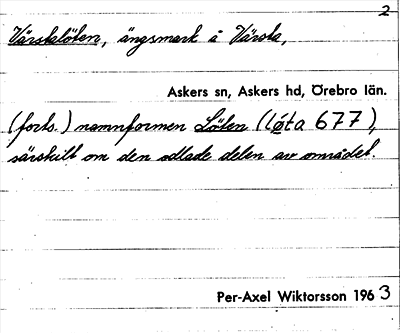 2
Värstalöten, ängsmark å Värsta,
Askers sn, Askers hd, Örebro län.
(forts.) namnformen Löten (lǿta 677),
särskilt om den odlade delen av området.
Per-Axel Wiktorsson 1963